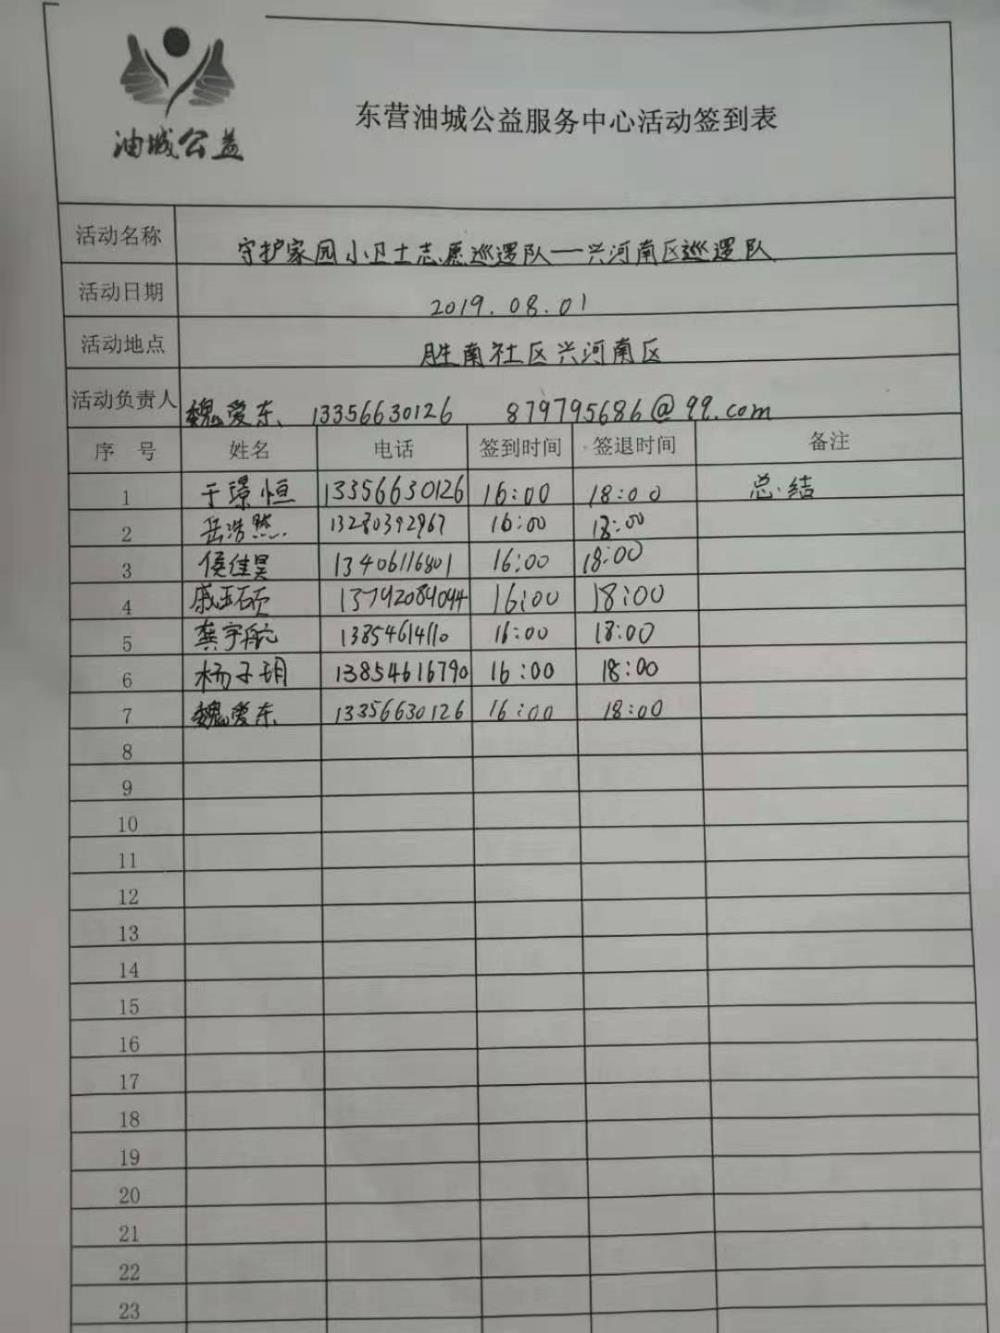 油城公益
东营油城公益服务中心活动签到表
活动名称 守护家园小卫士志愿巡逻队—兴河南区巡逻队
活动日期 2019.08.01
活动地点 胜南社区兴河南区
活动负责人 魏爱东 13356630126 879795686@qq.com
序 号 姓名 电话 签到时间 签退时间 备注
1 于璟恒 13356630126 16:00 18:00 总结
2 岳浩然 13280392967 16:00 18:00
3 侯佳昊 13406116801 16:00 18:00
4 戚玉硕 13792084044 16:00 18:00
5 龚宇航 13854614110 16:00 18:00
6 杨子玥 13854616790 16:00 18:00
7 魏爱东 13356630126 16:00 18:00
8
9
10
11
12
13
14
15
16
17
18
19
20
21
22
23